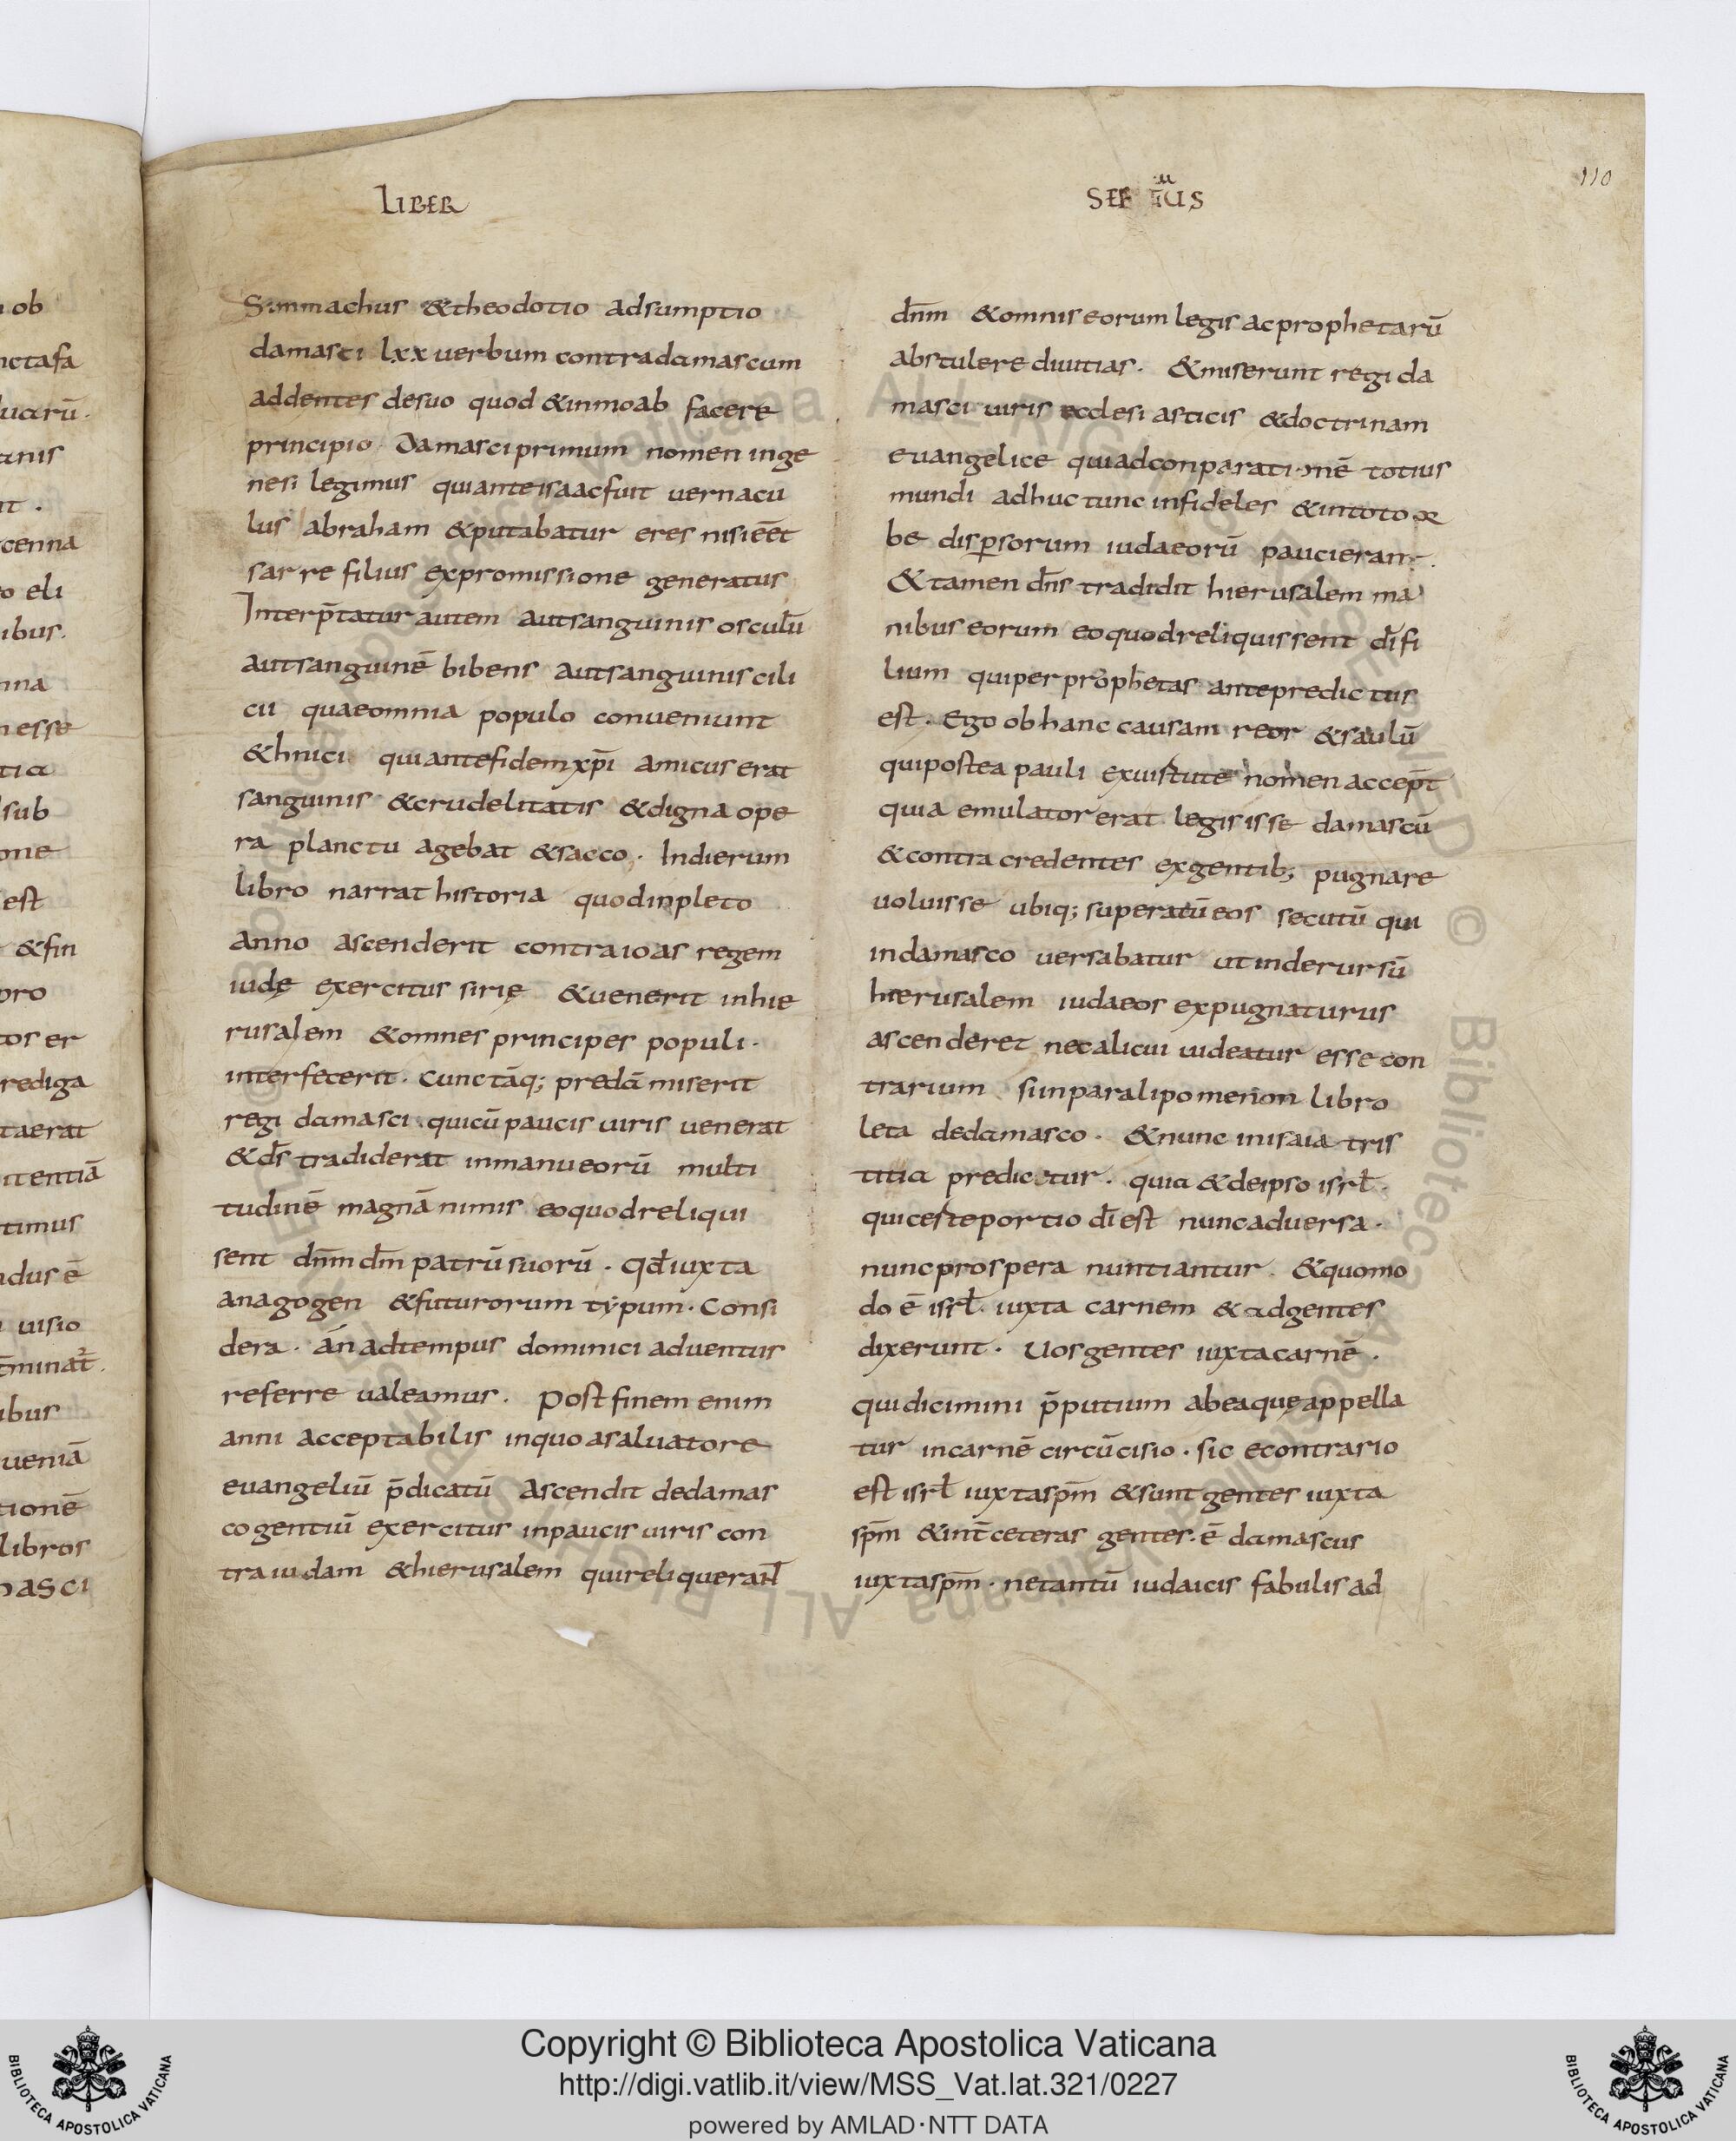 LIBER
SEPTIMUS
110
Simmachus & theodotio adsumptio
damasci lxx uerbum contra damascum
addentes desuo quod & inmoab facere
principio. Damasci primum nomen inge
nesi legimus qui ante isaac fuit uernacu
lus abraham & putabatur eres nisi eēt
sarre filius expromissione generatus
Interp̄tatur autem aut sanguinis osculū
aut sanguinē bibens aut sanguinis cili
cii quae omnia populo conueniunt
& hnici qui ante fidem xp̄i amicus erat
sanguinis & crudelitatis & digna ope
ra planctu agebat & sacco. Indierum
libro narrat historia quod inpleto
anno ascenderit contra ioas regem
iudę exercitus sirię & uenerit inhie
rusalem & omnes principes populi.
interfecerit. cunctāq; predā miserit
regi damasci. qui cū paucis uiris uenerat
& d̄s tradiderat inmanu eorū multi
tudinē magnā nimis eoquod reliqui
sent dn̄m dm̄ patrū suorū. Qđ iuxta
anagogen & futurorum typum. Consi
dera. an adtempus dominici aduentus
referre ualeamus. Post finem enim
anni acceptabilis inquo asaluatore
euangeliū p̄dicatū ascendit dedamas
co gentiū exercitus inpaucis uiris con
tra iudam & hierusalem qui reliquerant
dn̄m & omnis eorum legis ac prophetarū
abstulere diuitias. & miserunt regi da
masci uiris ecclesiasticis & doctrinam
euangelice qui adconparationē totius
mundi adhuc tunc infideles & intoto or
be disꝑsorum iudaeorū pauci erant.
& tamen dn̄s tradidit hierusalem ma
nibus eorum eo quod reliquissent dī fi
lium qui per prophetas ante predictus
est. Ego ob hanc causam reor & saulū
qui postea pauli ex uistute nomen accep̄t
quia emulator erat legis isse damascū
& contra credentes exgentib; pugnare
uoluisse ubiq; superatū eos secutū qui
indamasco uersabatur ut inde rursū
hierusalem iudaeos expugnaturus
ascenderet nec alicui uideatur esse con
trarium si inparalipomenon libro
leta dedamasco. & nunc inisaia tris
titia predicatur. quia & deipso isrł.
qui certe portio dī est nunc aduersa.
nunc prospera nuntiantur. & quomo
do ē isrł. iuxta carnem & adgentes
dixerunt. Uos gentes iuxta carnē.
qui dicimini p̄putium abea quę appella
tur incarnē circūcisio. sic econtrario
est isrł iuxta sp̄m & sunt gentes iuxta
sp̄m & int̄ ceteras gentes. ē damascus
iuxta sp̄m. ne tantū iudaicis fabulis ad
Copyright © Biblioteca Apostolica Vaticana
http://digi.vatlib.it/view/MSS_Vat.lat.321/0227
powered by AMLAD·NTT DATA
BIBLIOTECA APOSTOLICA VATICANA
BIBLIOTECA APOSTOLICA VATICANA